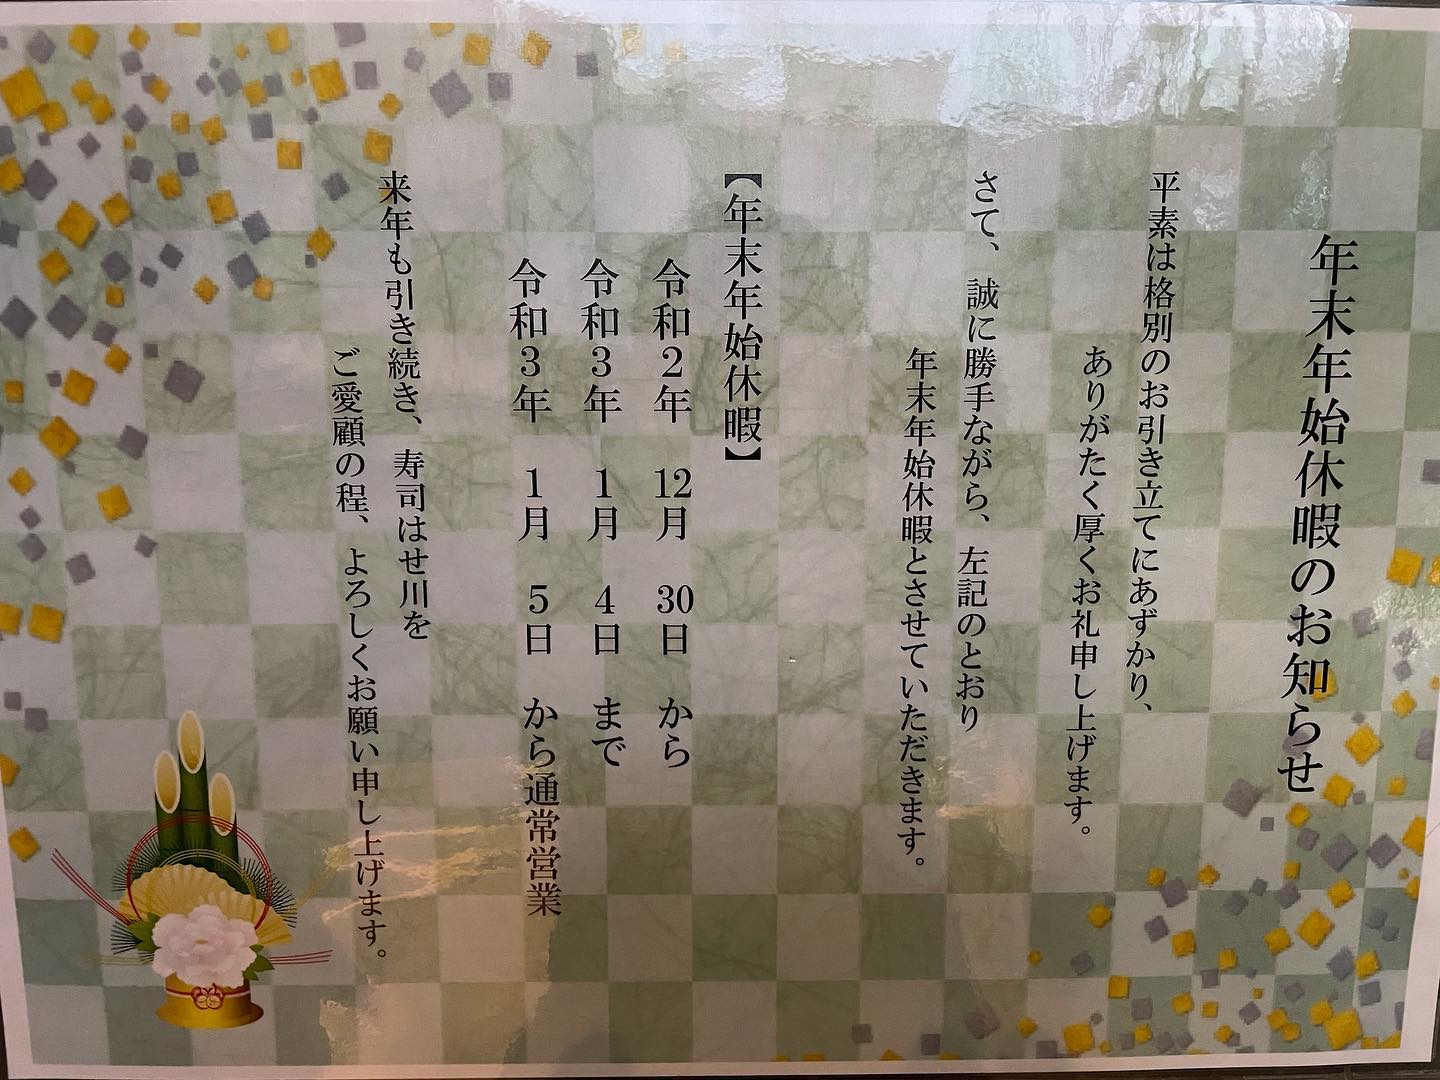 年末年始休暇のお知らせ
平素は格別のお引き立てにあずかり、
ありがたく厚くお礼申し上げます。
さて、誠に勝手ながら、左記のとおり
年末年始休暇とさせていただきます。
【年末年始休暇】
令和２年 12月 30日 から
令和３年 1月 4日 まで
令和３年 1月 5日 から通常営業
来年も引き続き、寿司はせ川を
ご愛顧の程、よろしくお願い申し上げます。